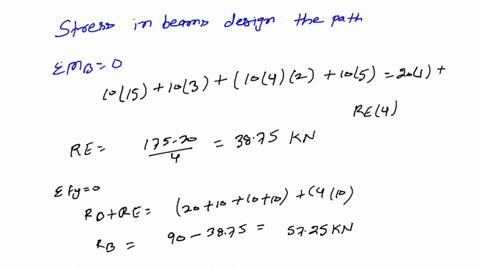 Stress in beams design the path
ΣMB=0
10(15)+10(3)+(10(4)(2)+10(5)=20(1)+
RE(4)
RE= 175-20/4 = 38.75 KN
ΣFy=0
RD+RE= (20+10+10+10)+(4(10)
RB= 90-38.75= 57.25KN